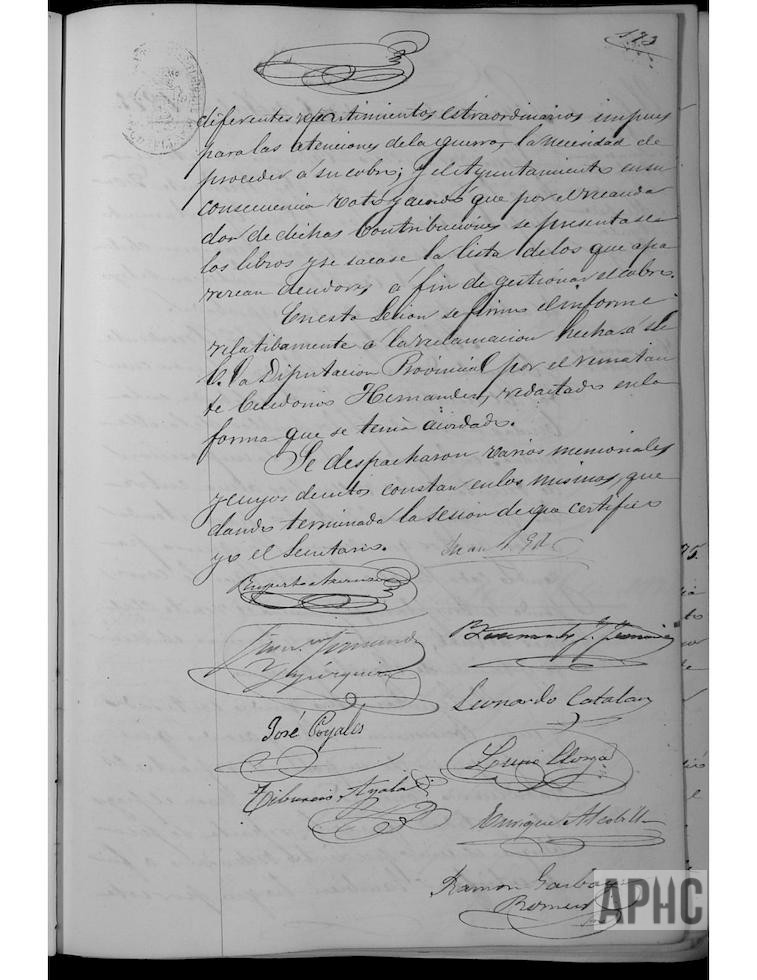 173
diferentes repartimientos estraordinarios impues
para las atenciones de la guerra, la necesidad de
proceder a su cobro; y el Ayuntamiento en su
consecuencia voto y acordó que por el recauda
dor de dichas Contribuciones se presentasen
los libros y se sacase la lista de los que apa
recean deudores a fin de gestionar el cobro.
En esta Sesion se firmo el informe
relatibamente a la reclamacion hecha a S.
E. la Diputacion Provincial por el rematan
te Celedonio Hernandez, redactado en la
forma que se tenia acordado.
Se despacharon varios memoriales
y cuyos decretos constan en los mismos, que
dando terminada la sesion de que certifico
yo el Secretario.
Ruperto
Leonardo Catalan
José Coyales
Tiburcio Ayala
Enrique Alcobilla
Ramon Garbayo
Romero
APHC